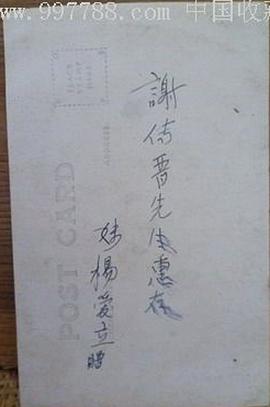 www.997788.com 中国收藏
PLACE
STAMP
HERE
POST CARD
謝傳晋先生惠存
妹楊愛立贈